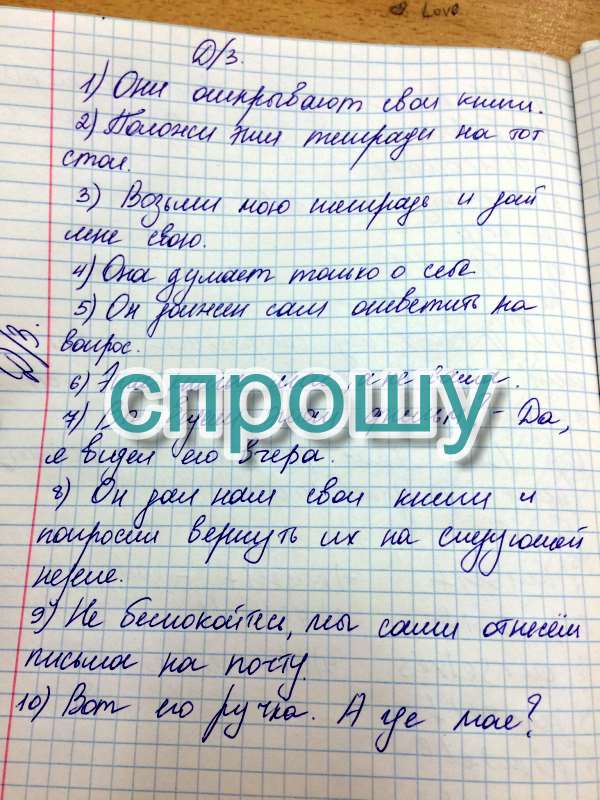 Love
Д/з.
1) Они открывают свои книги.
2) Положи эти тетради на тот
стол.
3) Возьми мою тетрадь и дай
мне свою.
4) Она думает только о себе
5) Он должен сам ответить на
вопрос.
Д/з.
6)
спрошу
7) - Да,
я видел его вчера.
8) Он дал нам свои книги и
попросил вернуть их на следующей
неделе.
9) Не беспокойтесь, мы сами отнесём
письма на почту.
10) Вот его ручка. А где моя?